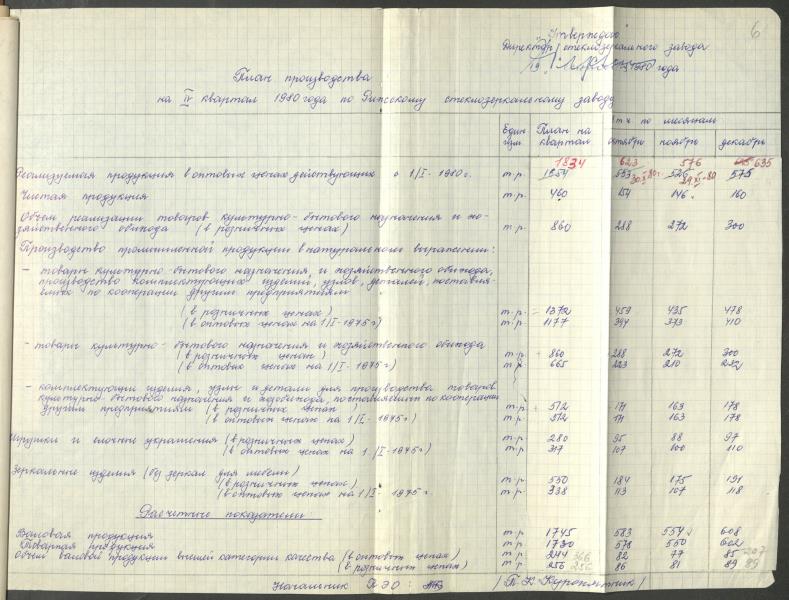 6
Утверждаю
Директор стеклозеркального завода
19 1980 года
План производства
на IV квартал 1980 года по Рипскому стеклозеркальному заводу
Един изм. План на квартал В т.ч. по месяцам
октябрь ноябрь декабрь
1834 623 576 635
Реализуемая продукция в оптовых ценах действующих с 1/I-1980г. т.р. 1654 553 526 575
Чистая продукция т.р. 460 154 146 160
Объем реализации товаров культурно-бытового назначения и хо-
зяйственного обихода (в розничных ценах) т.р. 860 288 272 300
Производство промышленной продукции в натуральном выражении:
- товары культурно-бытового назначения и хозяйственного обихода,
производство комплектующих изделий, узлов, деталей, поставля-
емых по кооперации другим предприятиям
(в розничных ценах) т.р. 1372 459 435 478
(в оптовых ценах на 1/I-1975г) т.р. 1177 394 373 410
- товары культурно-бытового назначения и хозяйственного обихода
(в розничных ценах) т.р. 860 288 272 300
(в оптовых ценах на 1/I-1975г) т.р. 665 223 210 232
- комплектующие изделия, узлы и детали для производства товаров
культурно-бытового назначения и хозобихода, поставляемых по кооперации
другим предприятиям (в розничных ценах) т.р. 512 171 163 178
(в оптовых ценах на 1/I-1975г) т.р. 512 171 163 178
Игрушки и елочные украшения (в розничных ценах) т.р. 280 95 88 97
(в оптовых ценах на 1/I-1975г) т.р. 317 107 100 110
Зеркальные изделия (без зеркал для мебели)
(в розничных ценах) т.р. 550 184 175 191
(в оптовых ценах на 1/I-1975г) т.р. 338 113 107 118
Расчетные показатели:
Валовая продукция т.р. 1745 583 554 608
Товарная продукция т.р. 1730 578 550 602
Объем валовой продукции высшей категории качества (в оптовых ценах) т.р. 244 82 77 85
(в розничных ценах) т.р. 256 86 81 89
Начальник ПЭО: